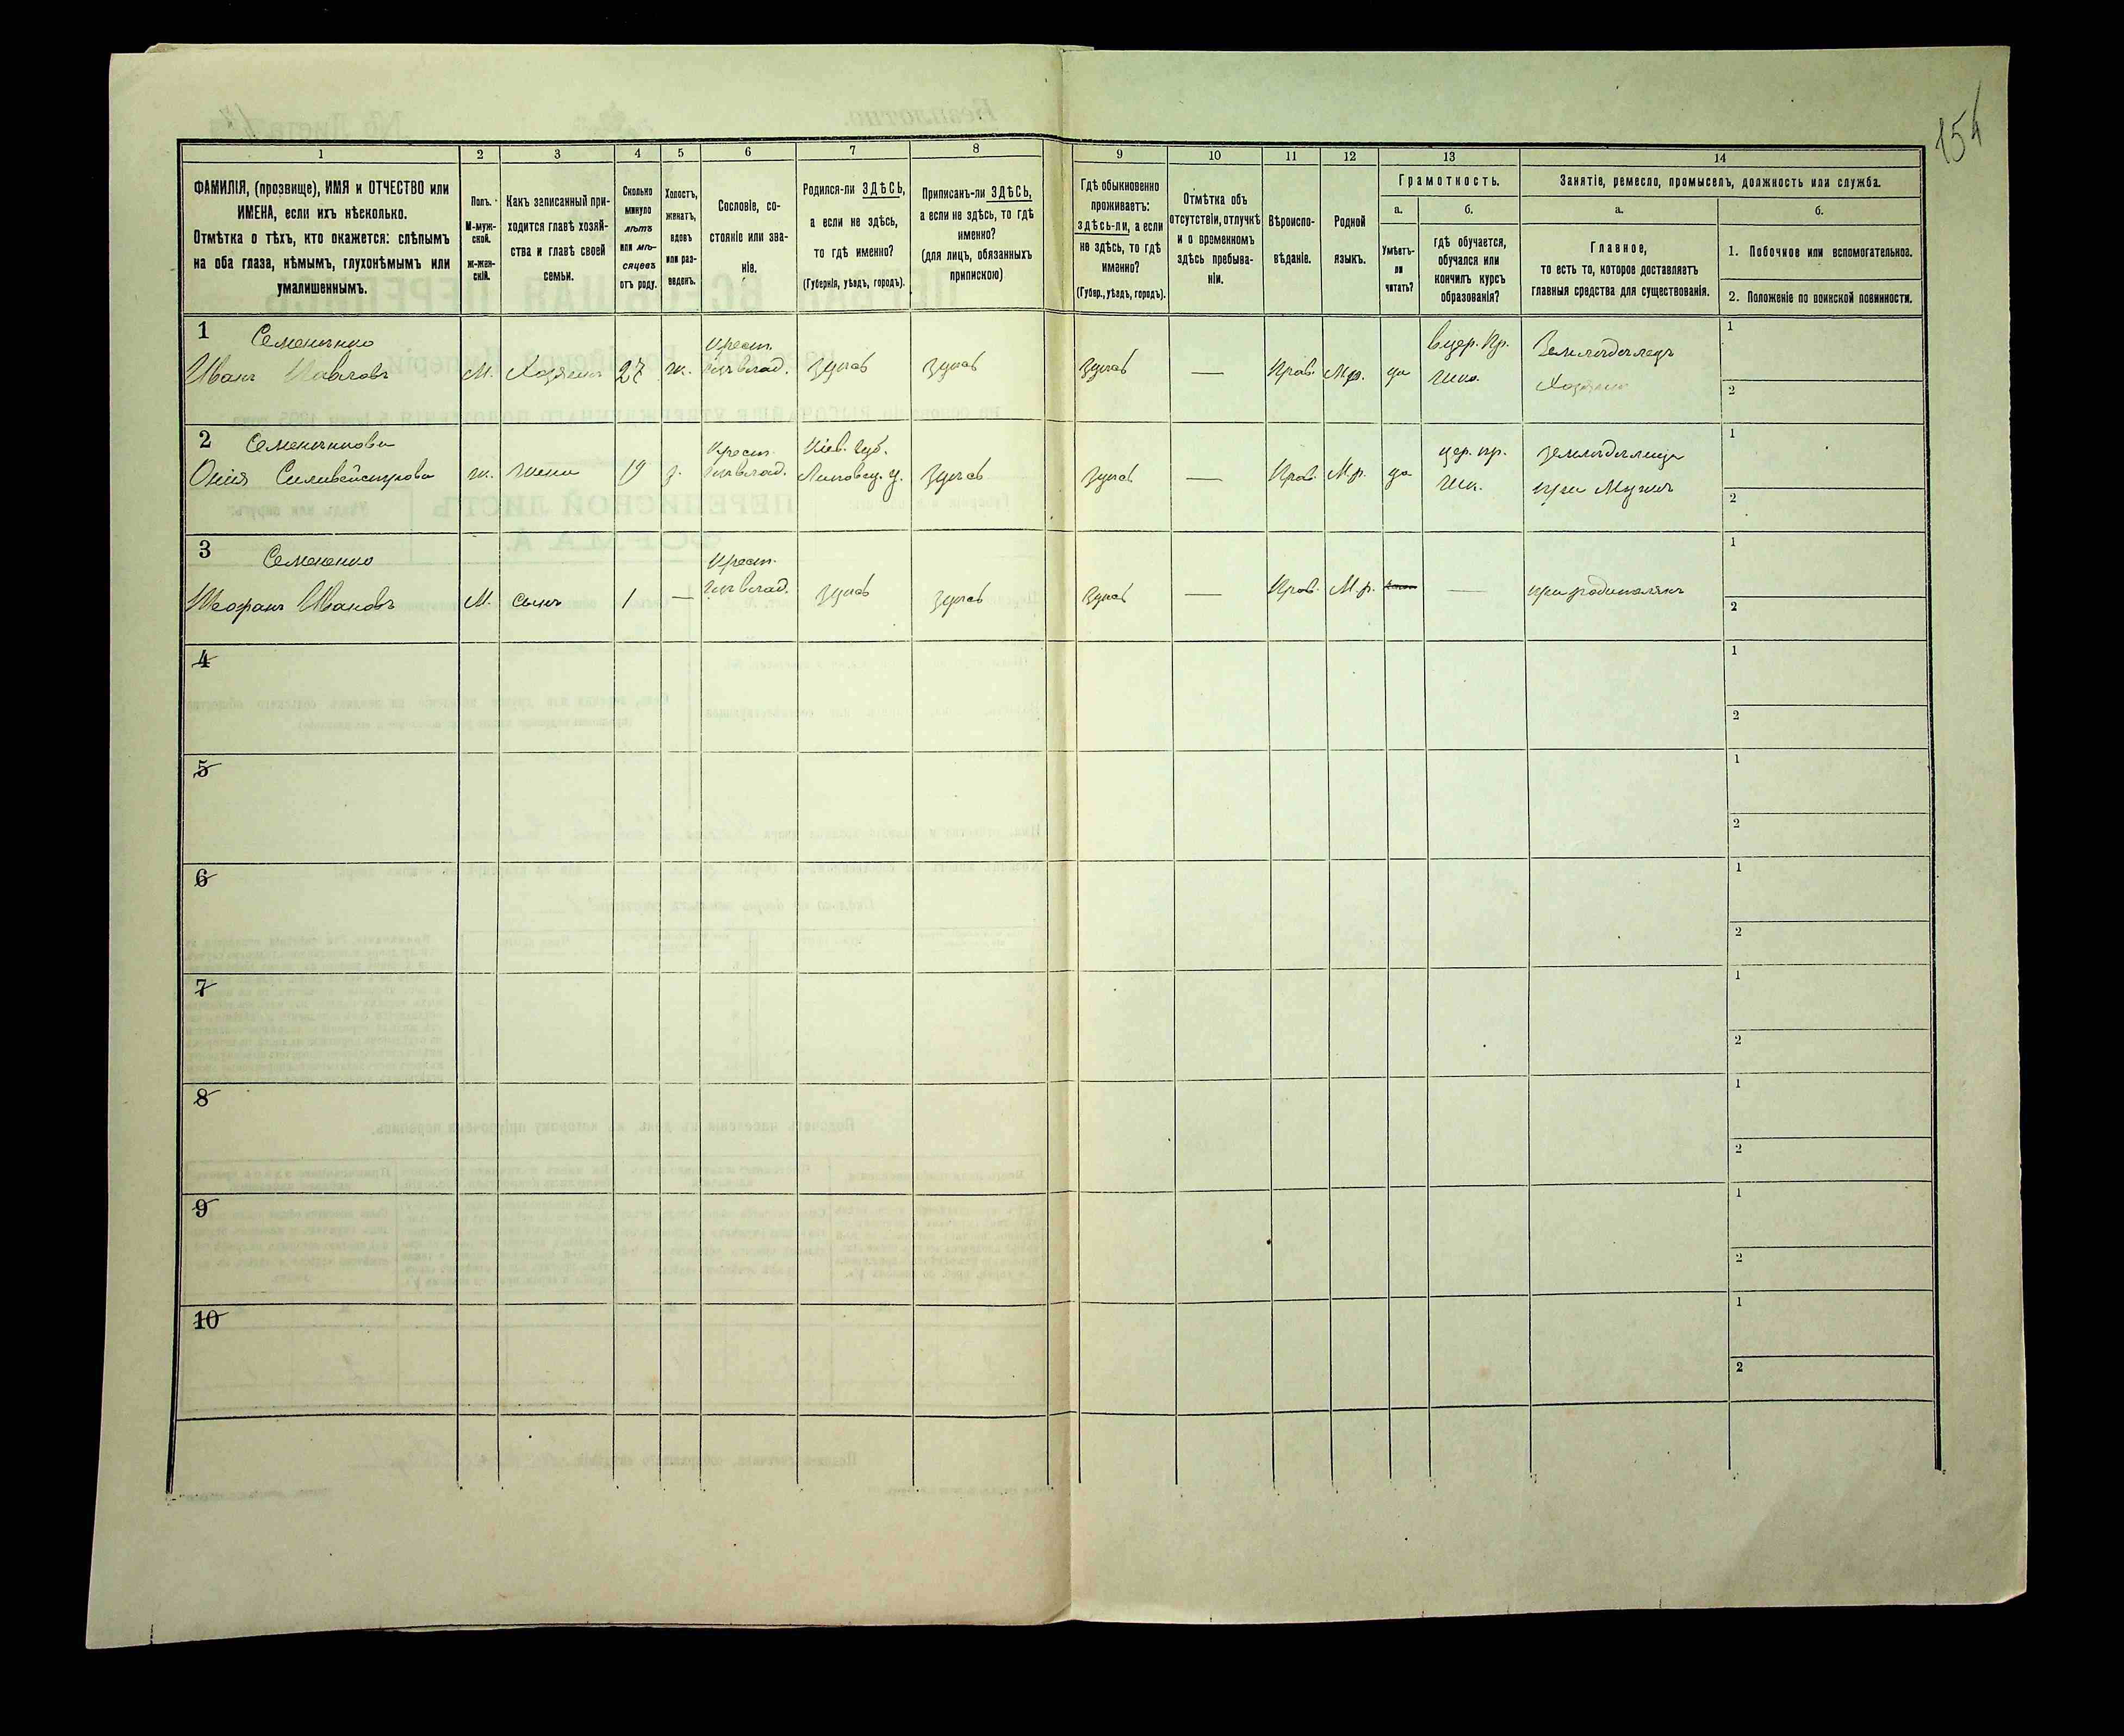 154
1
2
3
4
5
6
7
8
9
10
11
12
13
14
ФАМИЛІЯ, (прозвище), ИМЯ и ОТЧЕСТВО или
ИМЕНА, если ихъ нѣсколько.
Отмѣтка о тѣхъ, кто окажется: слѣпымъ
на оба глаза, нѣмымъ, глухонѣмымъ или
умалишеннымъ.
Полъ.
М-муж-
ской.
ж-жен-
скій.
Какъ записанный при-
ходится главѣ хозяй-
ства и главѣ своей
семьи.
Сколько
минуло
лѣтъ
или мѣ-
сяцевъ
отъ роду.
Холостъ,
женатъ,
вдовъ
или раз-
веденъ.
Сословіе, со-
стояніе или зва-
ніе.
Родился-ли ЗДѢСЬ,
а если не здѣсь,
то гдѣ именно?
(Губернія, уѣздъ, городъ).
Приписанъ-ли ЗДѢСЬ,
а если не здѣсь, то гдѣ
именно?
(для лицъ, обязанныхъ
припискою)
Гдѣ обыкновенно
проживаетъ:
здѣсь-ли, а если
не здѣсь, то гдѣ
именно?
(Губер., уѣздъ, городъ).
Отмѣтка объ
отсутствіи, отлучкѣ
и о временномъ
здѣсь пребыва-
ніи.
Вѣроиспо-
вѣданіе.
Родной
языкъ.
Грамотность.
а.
Умѣетъ-
ли
читать?
б.
гдѣ обучается,
обучался или
кончилъ курсъ
образованія?
Занятіе, ремесло, промыселъ, должность или служба.
а.
Главное,
то есть то, которое доставляетъ
главныя средства для существованія.
б.
1. Побочное или вспомогательное.
2. Положеніе по воинской повинности.
1
Иванъ Павловъ
М.
Хозяинъ
27
ж.
Крест.
здѣсь
здѣсь
здѣсь
—
Прав.
М.р.
да
в цер. пр.
шко.
Земледѣлецъ
Хозяинъ
1
2
2
ж.
жена
19
з.
Крест.
Кіев. губ.
Липовец. у.
здѣсь
здѣсь
—
Прав.
М.р.
да
цер. пр.
шк.
при мужѣ
1
2
3
Семененко
Ивановъ
М.
сынъ
1
—
Крест.
здѣсь
здѣсь
здѣсь
—
Прав.
М.р.
—
при родителяхъ
1
2
4
1
2
5
1
2
6
1
2
7
1
2
8
1
2
9
1
2
10
1
2